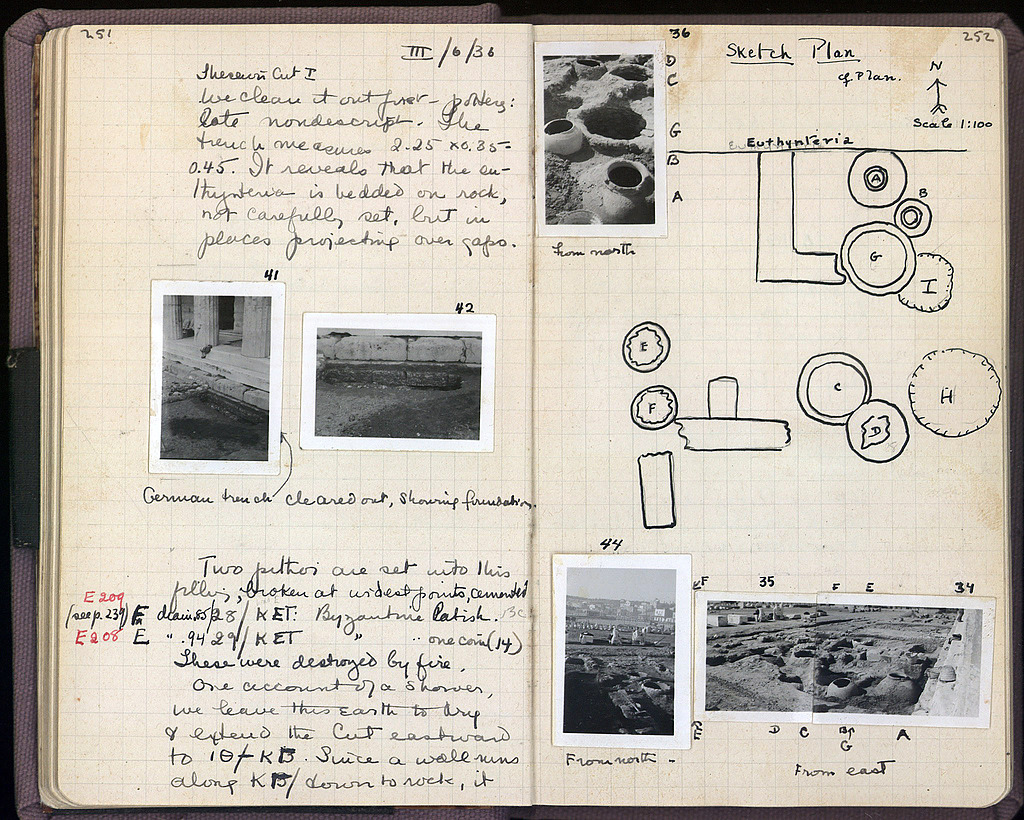 251
III/6/36
Theseion Cut I
We clean it out first - pottery:
late nondescript. The
trench measures 2.25 x0.35-
0.45. It reveals that the eu-
thynteria is bedded on rock,
not carefully set, but in
places projecting over gaps.
41
42
German trench cleared out, showing foundation.
Two pithoi are set into this
filling, broken at widest points, cemented
E209
(see p. 239) E diam. .85 28/ΚΕΤ: Byzantine
E208 E " .94 29/ΚΕΤ " " one coin (14)
These were destroyed by fire.
One account of a shower,
we leave this earth to dry
& extend the Cut eastward
to 10/-KB. Since a wall runs
along KB/ down to rock, it
252
36
D
C
G
B
A
from north
Sketch Plan
of Plan.
N
Scale 1:100
Euthynteria
A
B
G
I
E
F
C
D
H
44
From north -
F
35
F E
34
E
D C B G A
From east